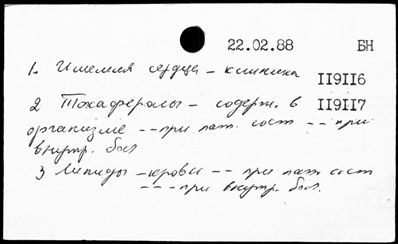 22.02.88 БН
1. Ишемия сердца – клиника II9II6
2 Токоферолы – содерж. в II9II7
организме -- при пат. сост -- при
внутр. бол
3 Липиды – крови -- при пат. сост
--- при внутр. бол.